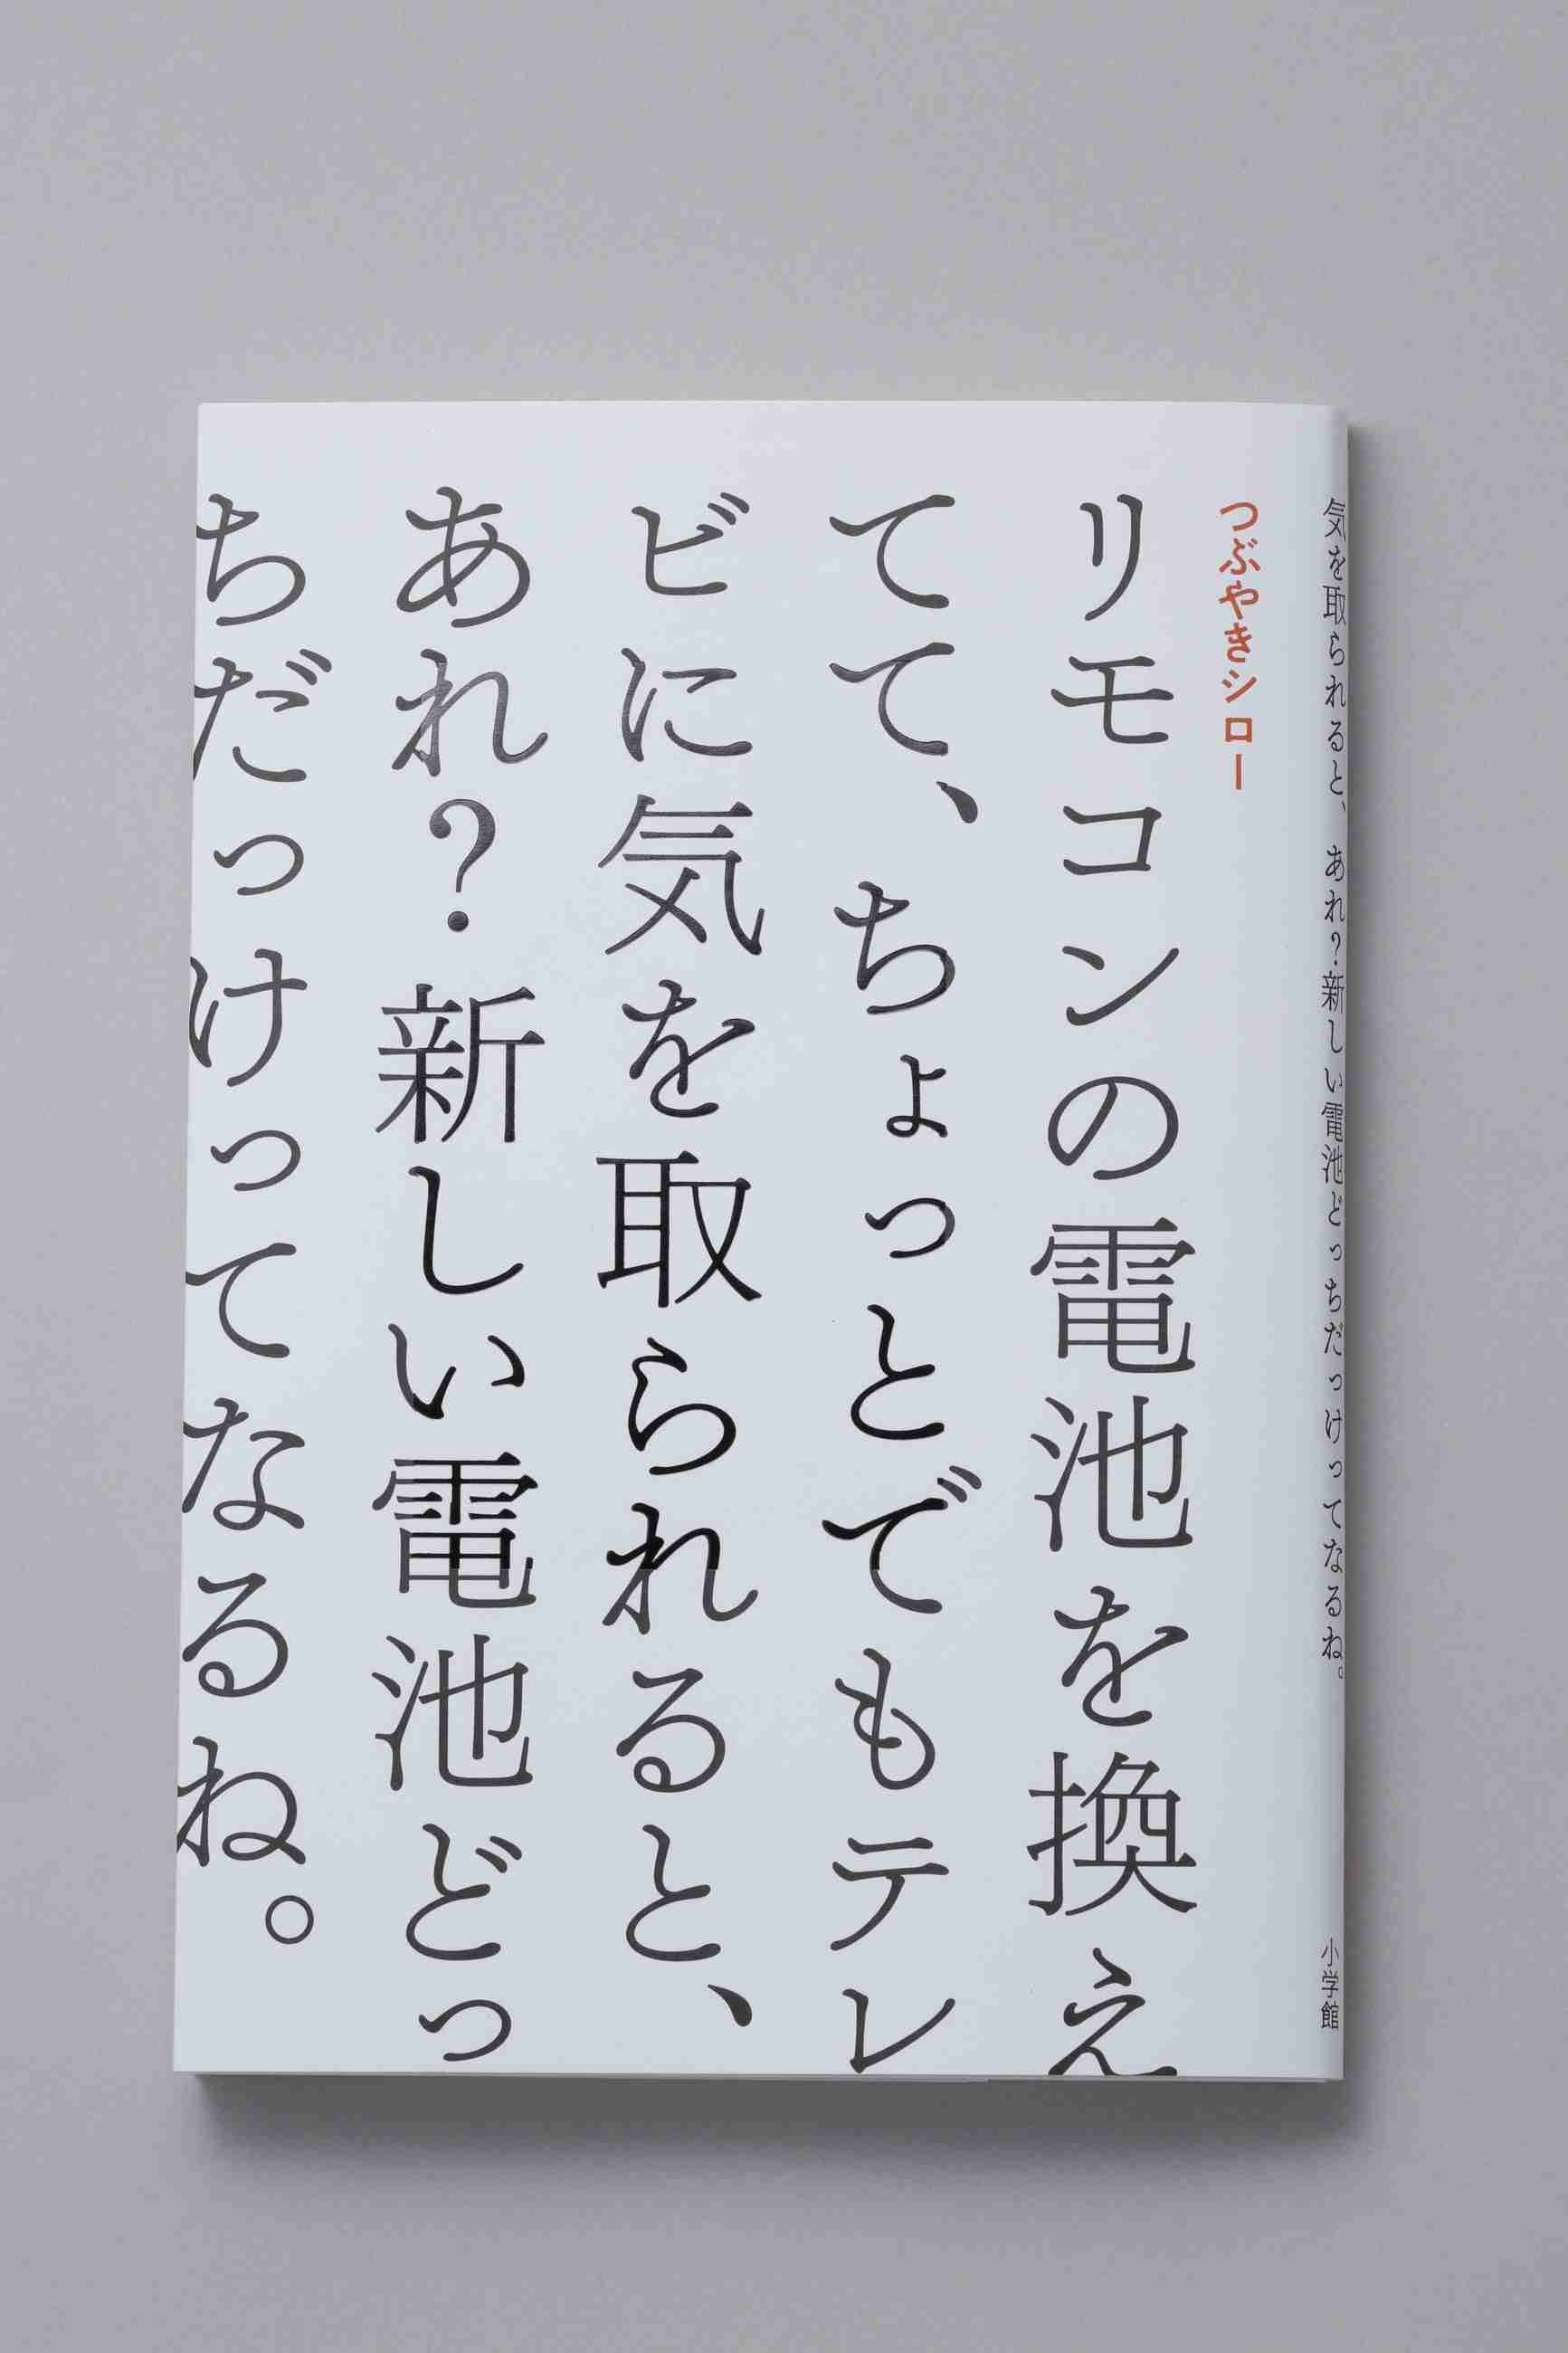 つぶやきシロー
リモコンの電池を換え
てて、ちょっとでもテレ
ビに気を取られると、
あれ？新しい電池どっ
ちだっけってなるね。
気を取られると、あれ？新しい電池どっちだっけってなるね。
小学館